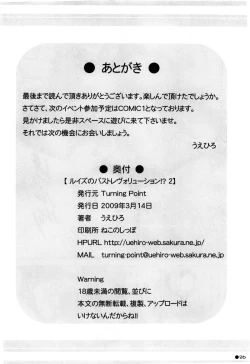 ● あとがき ●
最後まで読んで頂きありがとうございます。楽しんで頂けたでしょうか。
さてさて、次のイベント参加予定はCOMIC1となっております。
見かけましたら是非スペースに遊びに来て下さいませ。
それでは次の機会にお会いしましょう。
うえひろ
● 奥付 ●
【 ルイズのバストレヴォリューション!? 2】
発行元 Turning Point
発行日 2009年3月14日
著者 うえひろ
印刷所 ねこのしっぽ
HPURL http://uehiro-web.sakura.ne.jp/
MAIL turning-point@uehiro-web.sakura.ne.jp
Warning
18歳未満の閲覧、並びに
本文の無断転載、複製、アップロードは
いけないんだからね!!